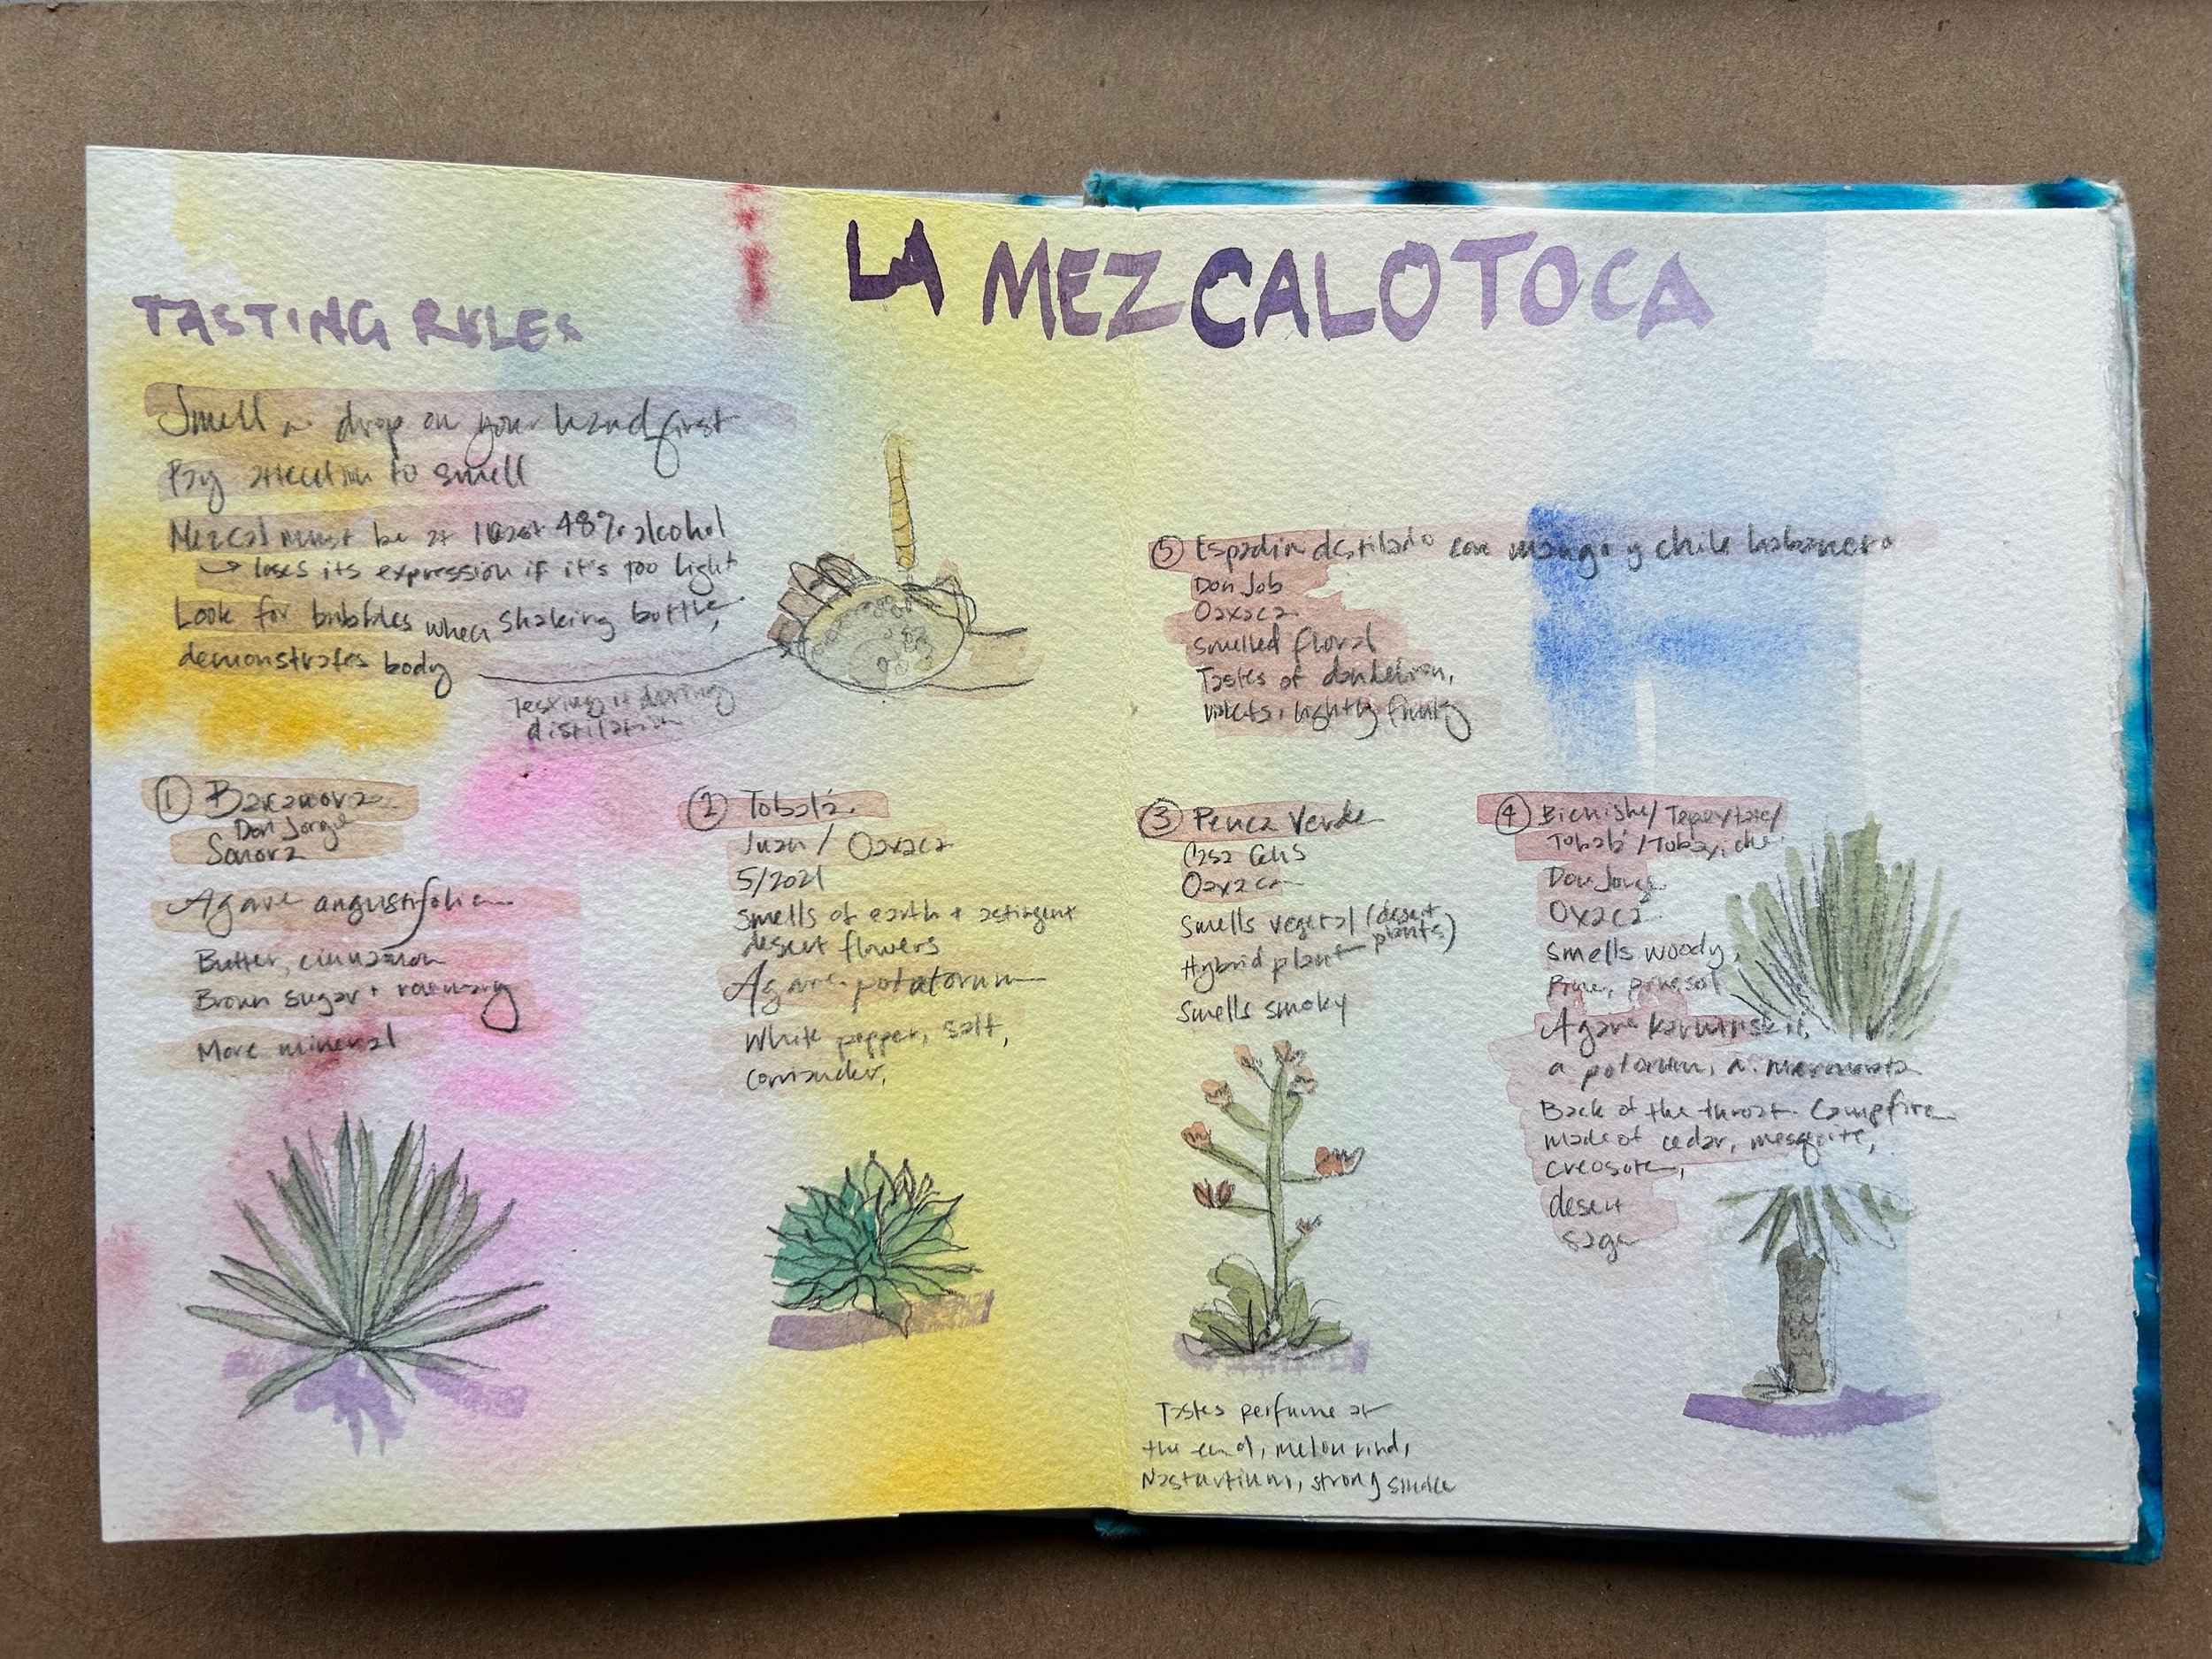 LA MEZCALOTOCA
TASTING RULES
Smell a drop on your hand first
Pay attention to smell
Mezcal must be at least 48% alcohol
→ loses its expression if it's too light
Look for bubbles when shaking bottle,
demonstrates body
Testing it during
distilation
① Bacanora
Don Jorge
Sonora
Agave angustifolia
Butter, cinnamon
Brown sugar + rosemary
More mineral
② Tobalá
Juan / Oaxaca
5/2021
Smells of earth + astingent
desert flowers
Agave potatorum
White pepper, salt,
corriander,
③ Penca Verde
Casa
Oaxaca
Smells vegetal (desert
plants)
Hybrid plant
Smells smoky
Tastes perfume at
the end, melon rind,
Nasturtium, strong smoke
④ Bicuishe/Tepeztate/
Tobalá/Tobaziche
Don Jorge
Oxaca
Smells woody,
Pine, pinesol
Agave karwinskii,
a potorum, a. marmorata
Back of the throat campfire
made of cedar, mesquite,
creosote,
desert
sage
⑤ Espadin destilado con mango y chile habanero
Don Job
Oaxaca
Smelled floral
Tastes of dandelion,
violets, lightly fruity